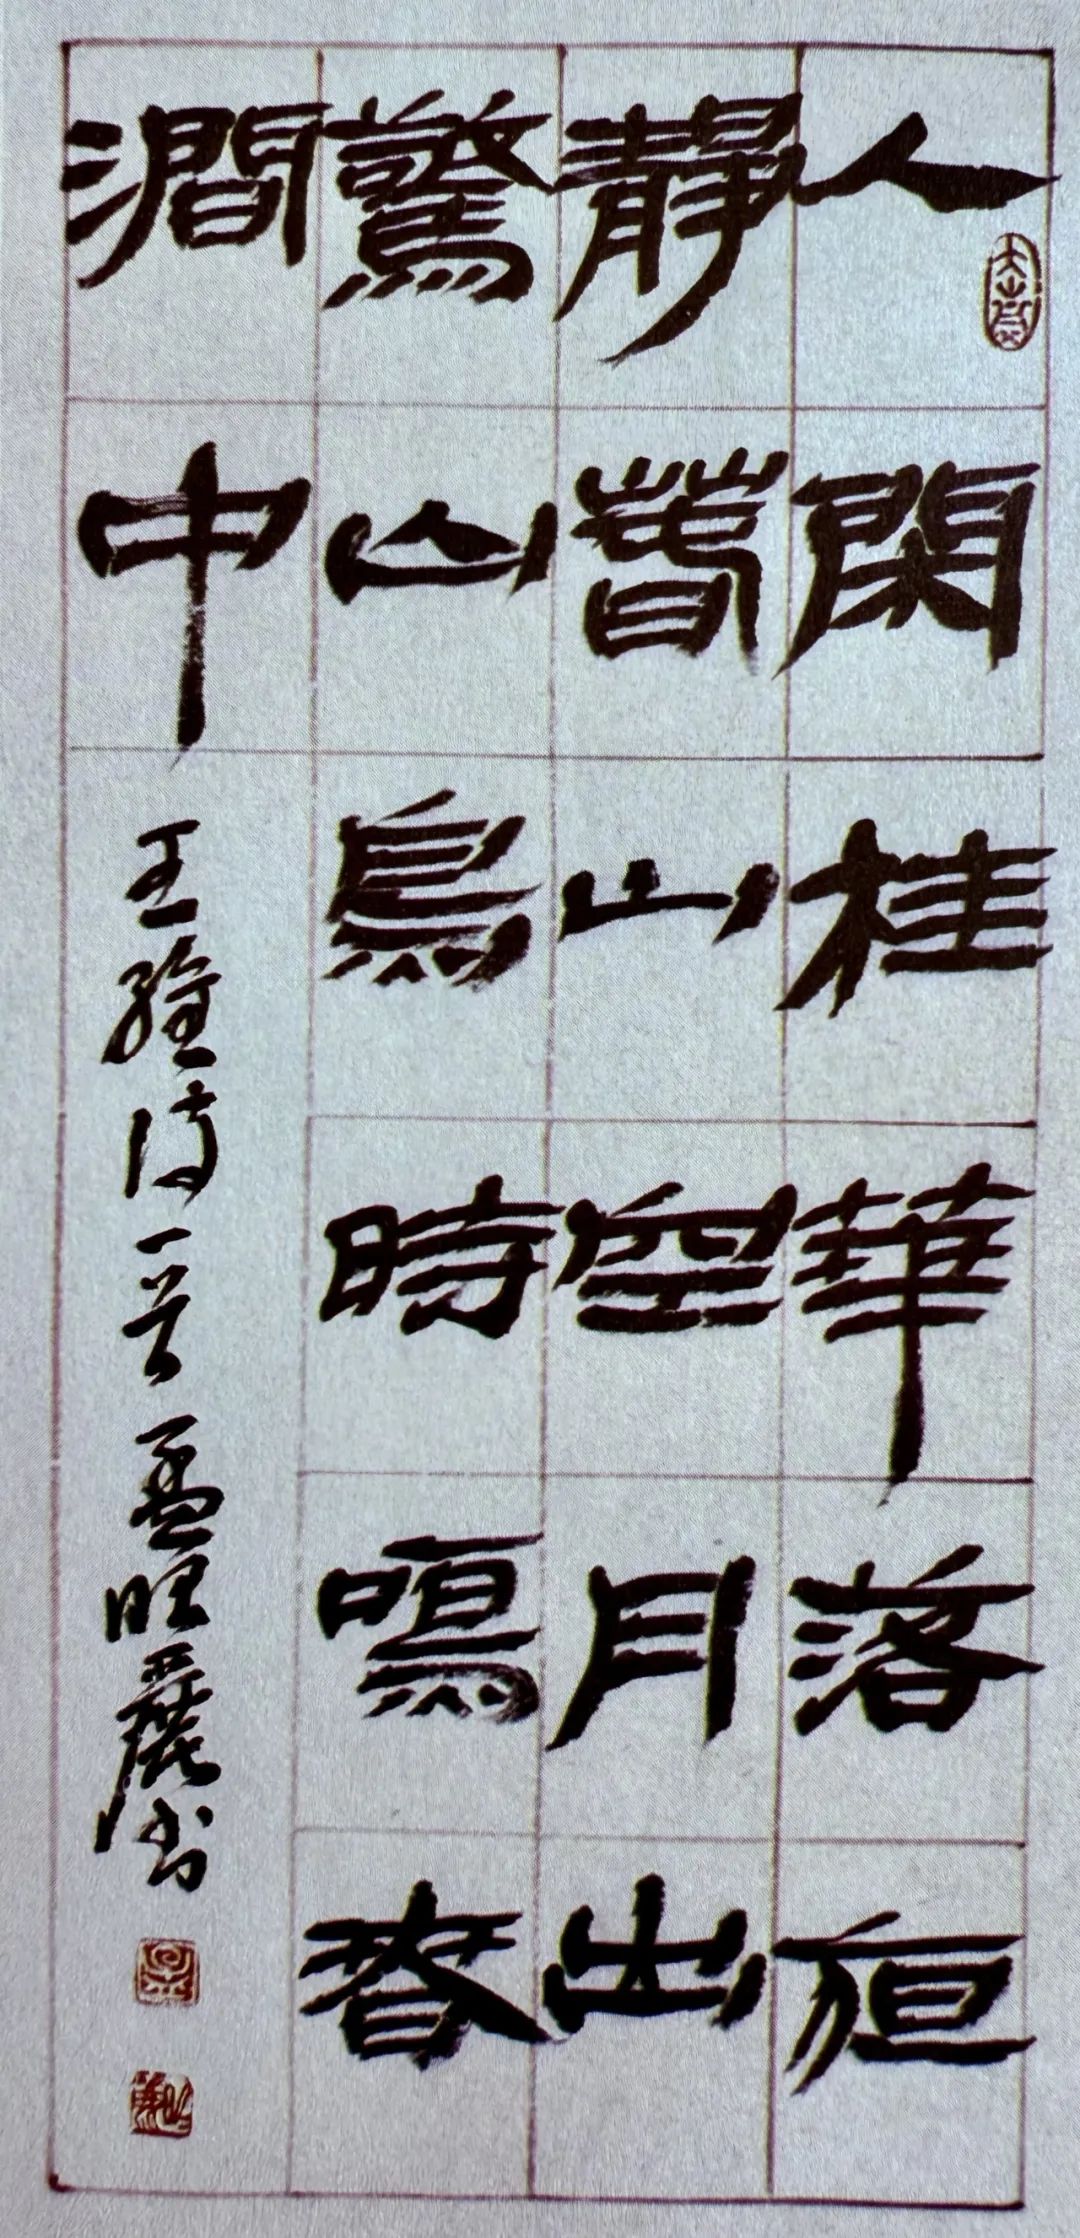 人閑桂華落夜
靜萅山空月出
驚山鳥時鳴春
澗中
王維詩一首孟旺麗書